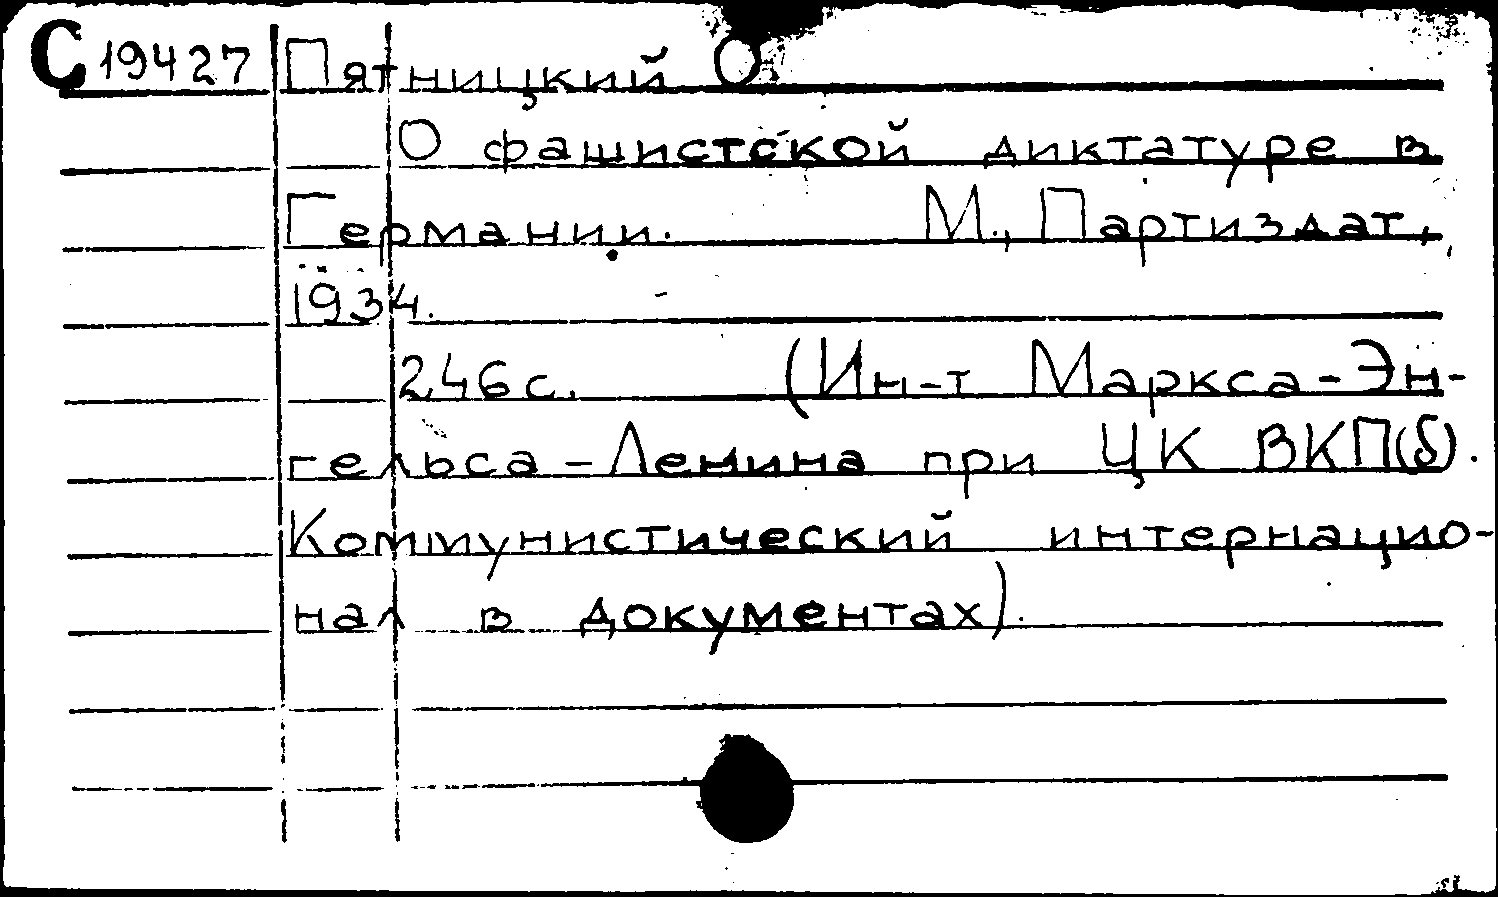 С 19427 Пятницкий О.
О фашистской диктатуре в
Германии. М., Партиздат,
1934.
246 с. (Ин-т Маркса-Эн-
гельса-Ленина при ЦК ВКП(б).
Коммунистический интернацио-
нал в документах).